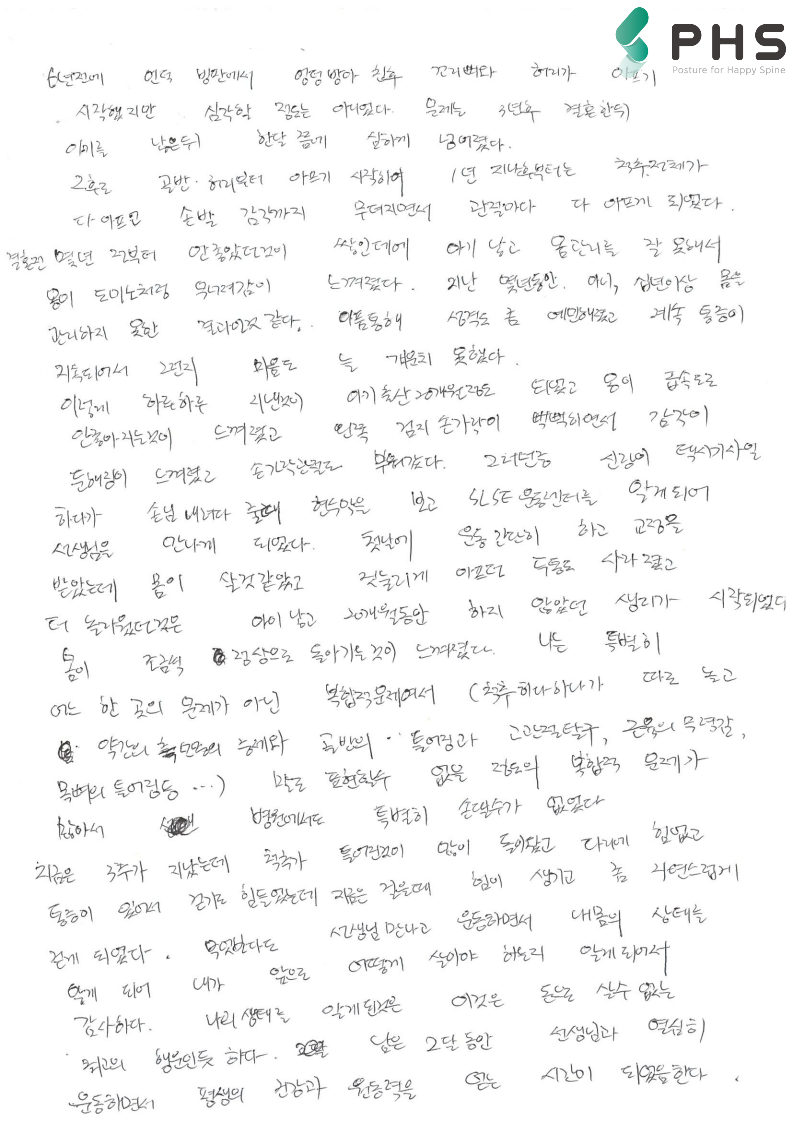 PHS
Posture for Happy Spine
6년전에 언덕 빙판에서 엉덩방아 친후 꼬리뼈와 허리가 아프기
시작했지만 심각할 정도는 아니었다. 문제는 3년후 결혼한뒤
아기를 낳은뒤 한달 쯤에 심하게 넘어졌다.
그후로 골반·허리부터 아프기 시작하여 1년 지난후부터는 척추전체가
다 아프고 손발 감각까지 무뎌지면서 관절마다 다 아프게 되었다.
결혼전 몇년 전부터 안좋았던것이 쌓인데에 아기 낳고 몸관리를 잘 못해서
몸이 도미노처럼 무너져감이 느껴졌다. 지난 몇년동안. 아니, 십년이상 몸을
관리하지 못한 결과인것 같다. 아픔통해 성격도 좀 예민해졌고 계속 통증이
지속되어서 그런지 마음도 늘 개운치 못했다.
이렇게 하루하루 지낸것이 아기출산 20개월정도 되었고 몸이 급속도로
안좋아지는것이 느껴졌고 왼쪽 검지 손가락이 뻑뻑하면서 감각이
둔해짐이 느껴졌고 손가락관절도 부어갔다. 그러던중 신랑이 택시기사일
하다가 손님 내려다 줄때 현수막을 보고 SLSE 운동센터를 알게되어
선생님을 만나게 되었다. 첫날에 운동 간단히 하고 교정을
받았는데 몸이 살것같았고 짓눌리게 아프던 두통도 사라졌고
더 놀라웠던것은 아이 낳고 20개월동안 하지 않았던 생리가 시작되었다
몸이 조금씩 정상으로 돌아가는것이 느껴졌다. 나는 특별히
어느 한 곳의 문제가 아닌 복합적문제여서 (척추 하나하나가 따로 놀고
약간의 증세와 골반의 틀어짐과 고관절탈구, 근육의 무력감,
목뼈의 틀어짐등 …) 말로 표현할수 없을 정도의 복합적 문제가
많아서 병원에서도 특별히 손댈수가 없었다
지금은 3주가 지났는데 척추가 틀어진것이 많이 돌아왔고 다리에 힘없고
통증이 있어서 걷기도 힘들었는데 지금은 걸을때 힘이 생기고 좀 자연스럽게
걷게 되었다. 무엇보다도 선생님 만나고 운동하면서 내몸의 상태를
알게 되어 내가 앞으로 어떻게 살아야 하는지 알게되어서
감사하다. 나의 상태를 알게된것은 이것은 돈으로 살수 없는
최고의 행운인듯 하다. 남은 2달 동안 선생님과 열심히
운동하면서 평생의 건강과 원동력을 얻는 시간이 되었음한다.